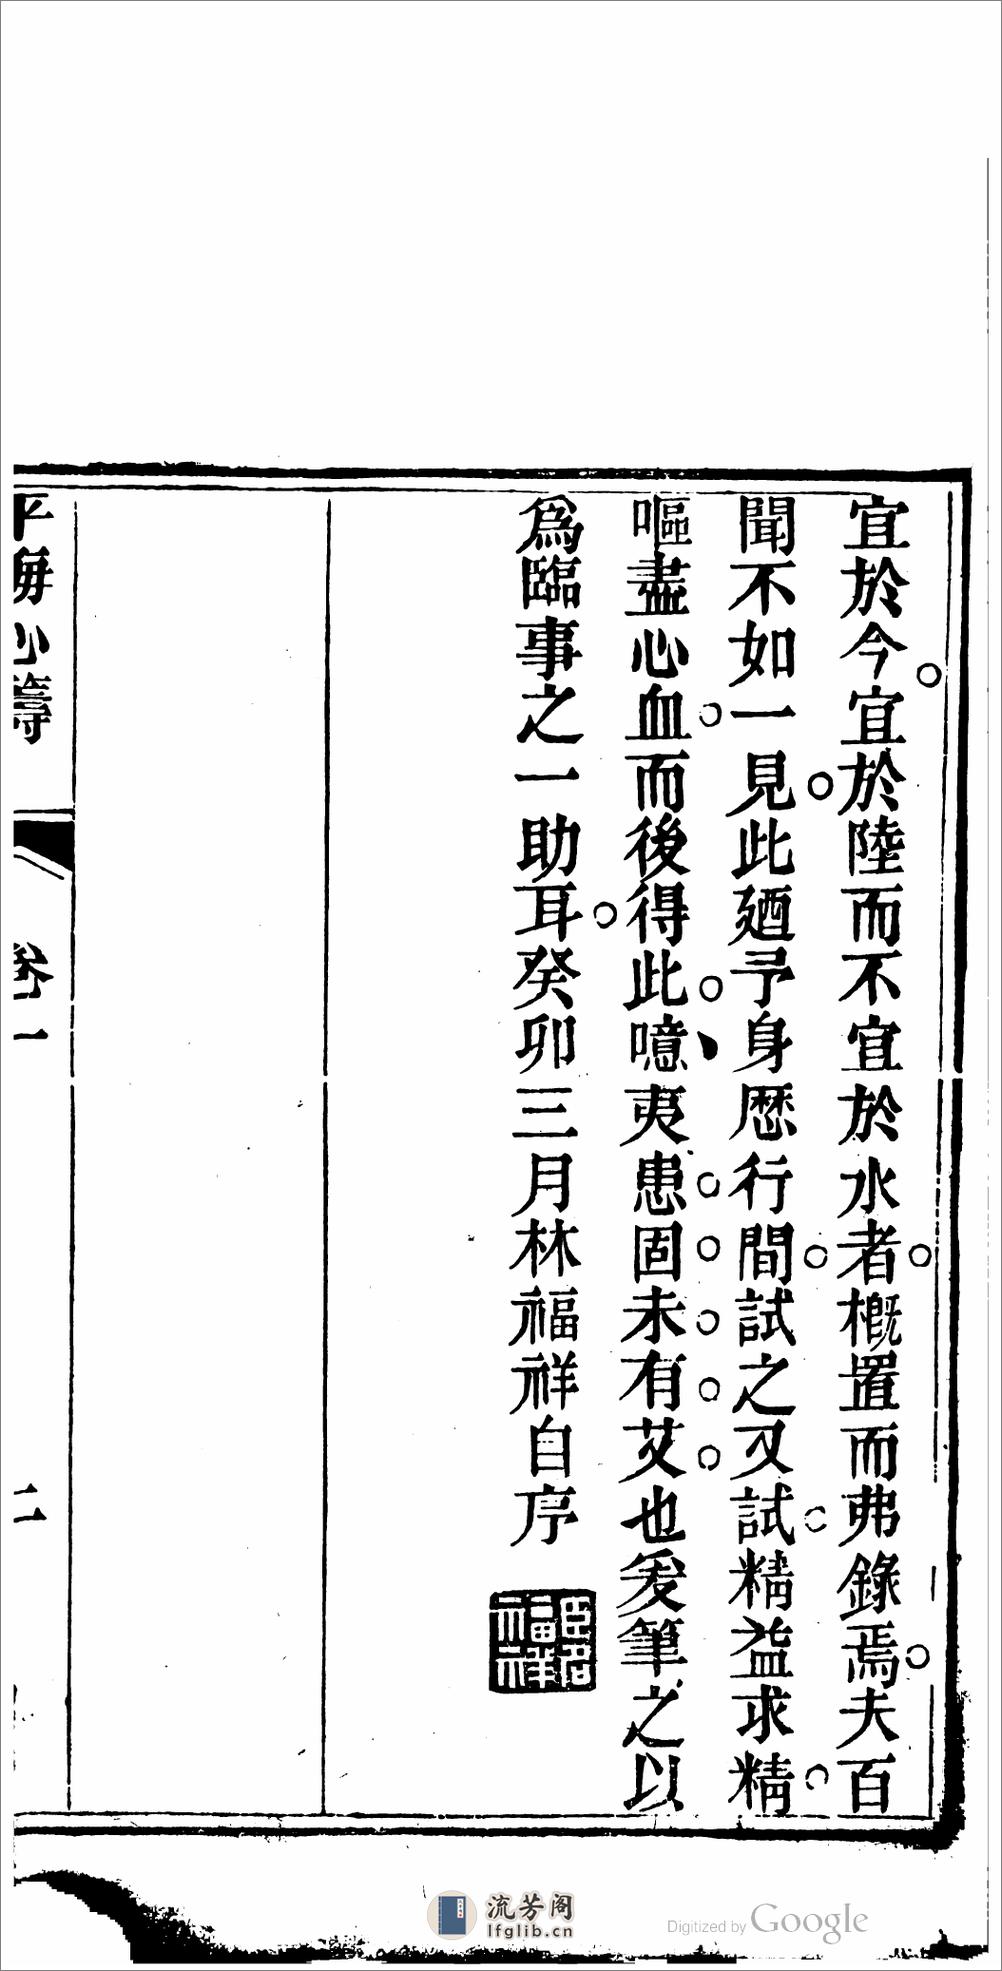 宜於今宜於陸而不宜於水者概置而弗錄焉夫百
聞不如一見此廼予身歷行間試之又試精益求精
嘔盡心血而後得此噫夷患固未有艾也爰筆之以
為臨事之一助耳癸卯三月林福祥自序
臣名福祥
平海心籌
卷一
二
流芳阁
lfglib.cn
Digitized by Google